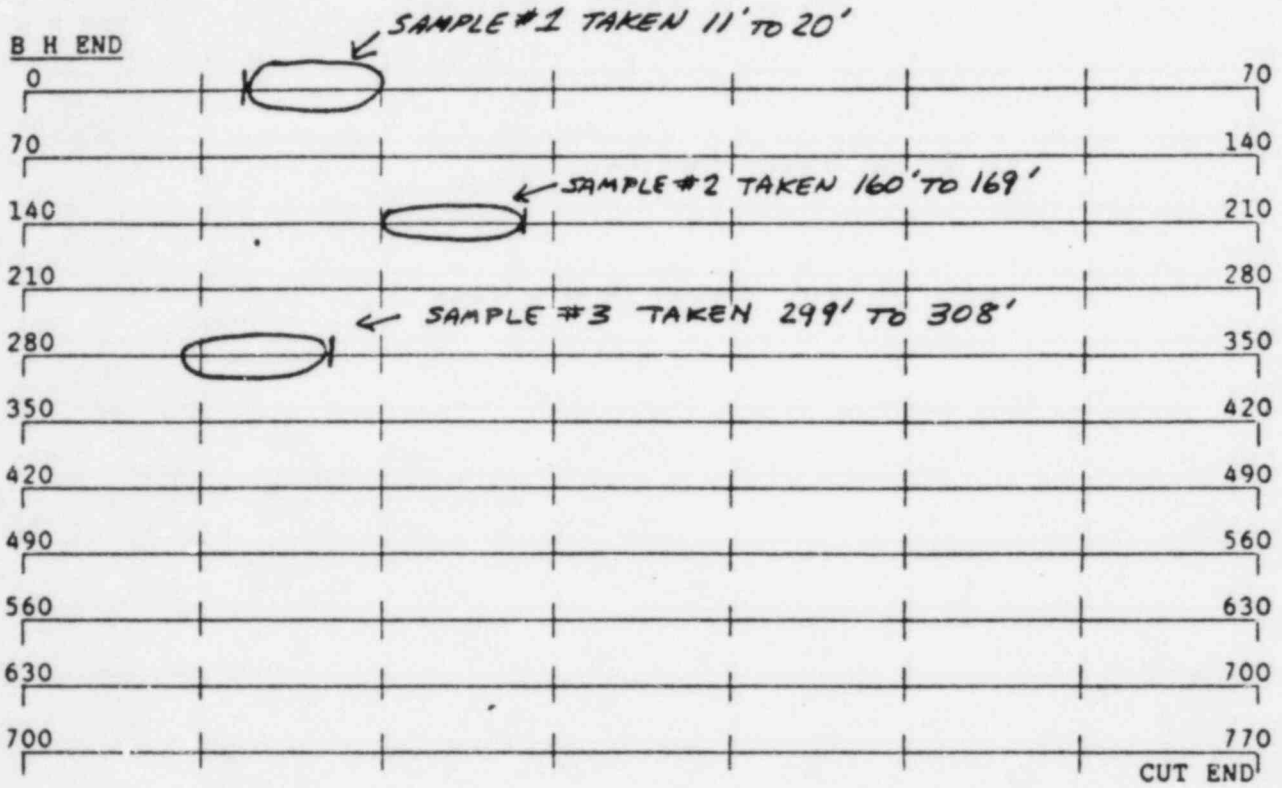 SAMPLE #1 TAKEN 11' TO 20'
B H END
0 70
70 140
SAMPLE #2 TAKEN 160' TO 169'
140 210
210 280
SAMPLE #3 TAKEN 299' TO 308'
280 350
350 420
420 490
490 560
560 630
630 700
700 770
CUT END